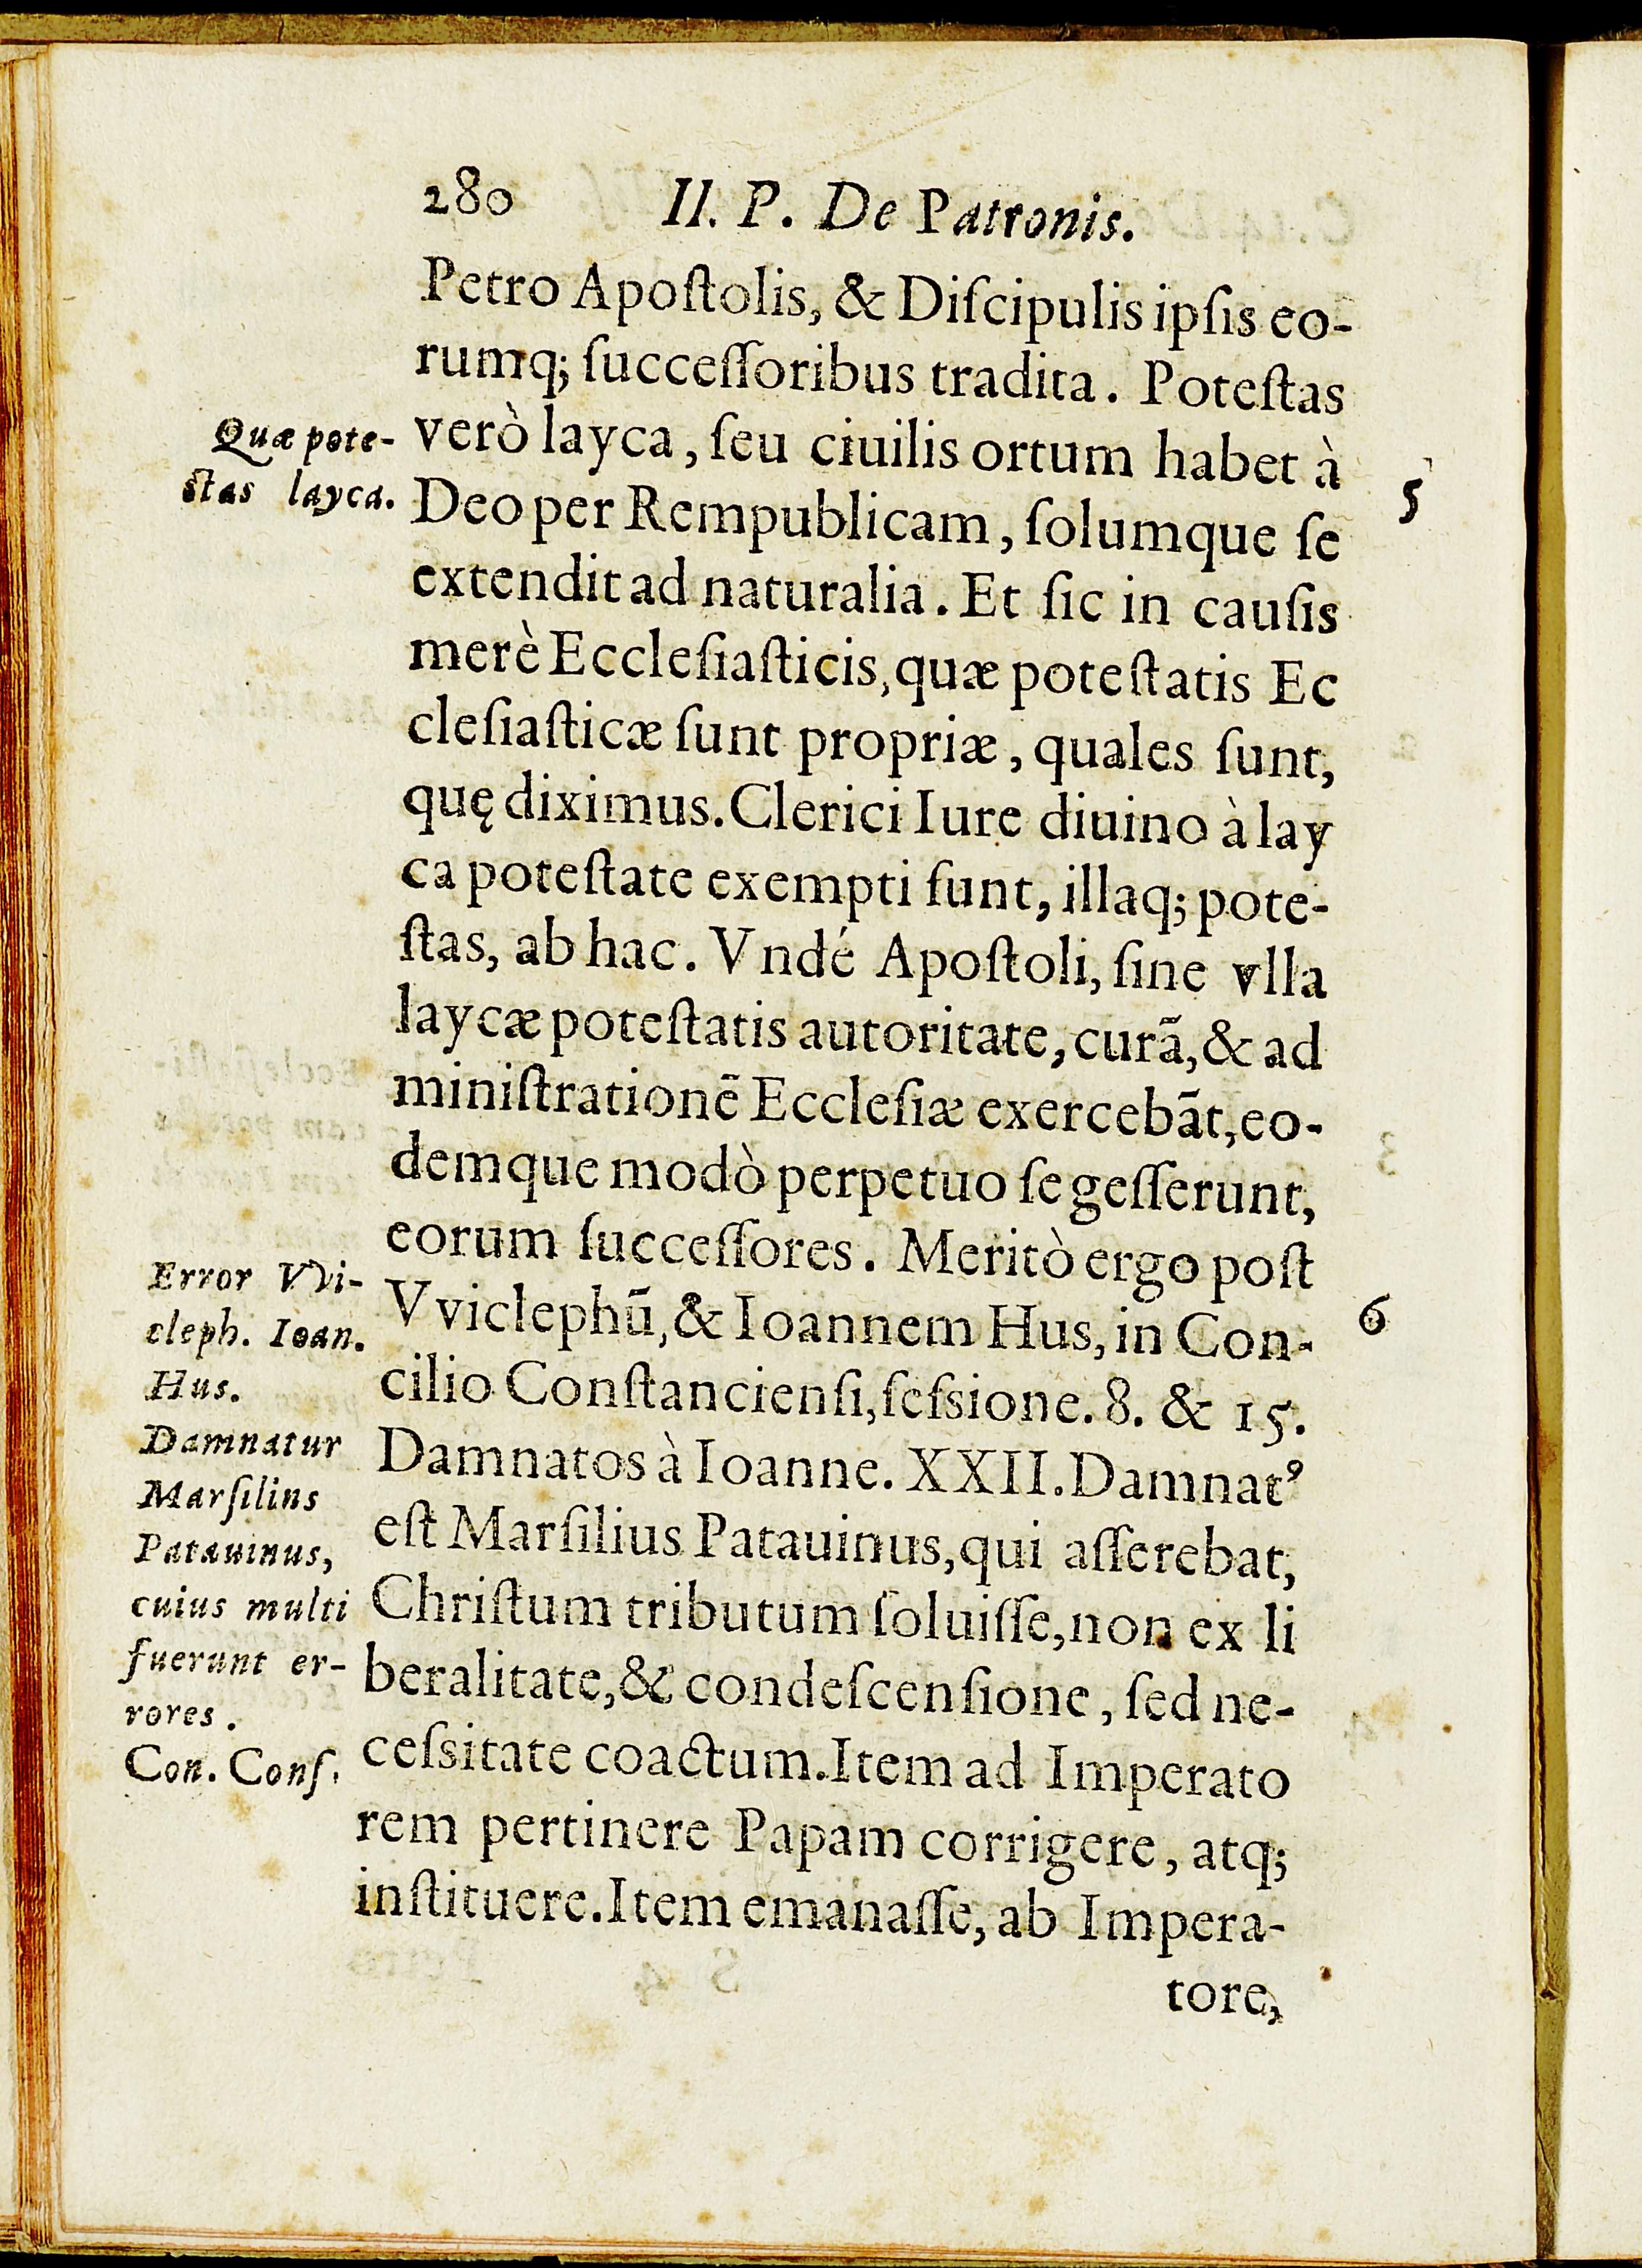 280 II. P. De Patronis.
Petro Apoſtolis, & Diſcipulis ipſis eo-
rumq; ſucceſſoribus tradita. Poteſtas
verò layca, ſeu ciuilis ortum habet à
Deo per Rempublicam, ſolumque ſe
extendit ad naturalia. Et ſic in cauſis
merè Eccleſiaſticis, quæ poteſtatis Ec
cleſiaſticæ ſunt propriæ, quales ſunt,
quę diximus. Clerici Iure diuino à lay
ca poteſtate exempti ſunt, illaq; pote-
ſtas, ab hac. Vndé Apoſtoli, ſine vlla
laycæ poteſtatis autoritate, curã, & ad
miniſtrationẽ Eccleſiæ exercebãt, eo-
demque modò perpetuo ſe geſſerunt,
eorum ſucceſſores. Meritò ergo poſt
Vviclephũ, & Ioannem Hus, in Con-
cilio Conſtancienſi, ſeſsione. 8. & 15.
Damnatos à Ioanne. XXII. Damnatꝰ
eſt Marſilius Patauinus, qui aſſerebat,
Chriſtum tributum ſoluiſſe, non ex li
beralitate, & condeſcenſione, ſed ne-
ceſsitate coactum. Item ad Imperato
rem pertinere Papam corrigere, atq;
inſtituere. Item emanaſſe, ab Impera-
tore,
Quæ pote-
ſtas layca.
Error VVi-
cleph. Ioan.
Hus.
Damnatur
Marſilins
Patauinus,
cuius multi
fuerunt er-
rores.
Con. Conſ.
5
6